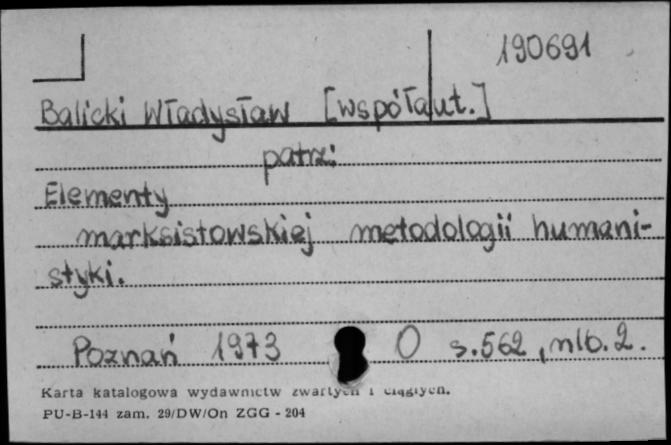 190691
Balicki Władysław [współaut.]
patrz:
Elementy
marksistowskiej metodologii humani-
styki.
Poznań 1973 O s.562, nlb.2.
Karta katalogowa wydawnictw zwartych i ciągłych.
PU-B-144 zam. 29/DW/On ZGG - 204